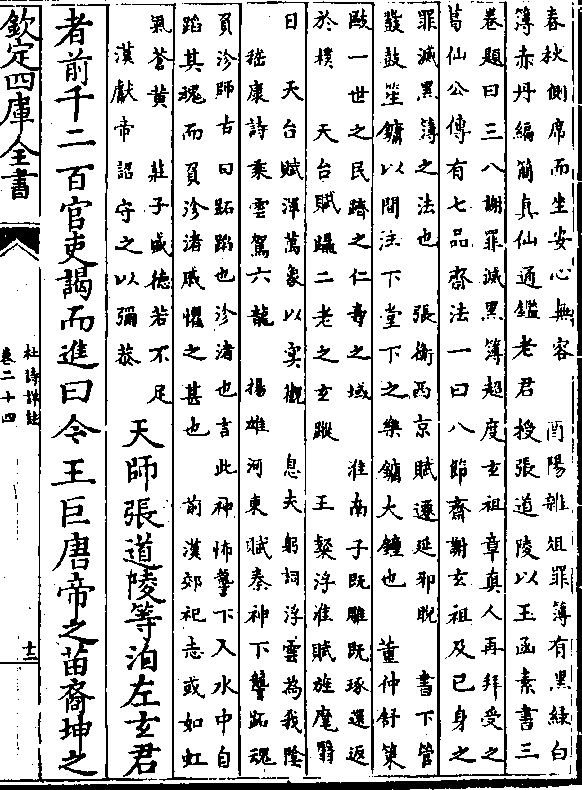 春秋側席而坐安心無容　酉陽雜俎罪簿有黑緑白
簿赤丹編簡真仙通鑑老君授張道陵以玉函素書三
卷題曰三八謝罪滅黑簿超度玄祖章真人再拜受之
葛仙公傳有七品齋法一曰八節齋謝玄祖及己身之
罪滅黑簿之法也　張衡西京賦遷延邪睨　書下管
鼗鼓笙鏞以間注下堂下之樂鏞大鐘也　董仲舒策
敺一世之民躋之仁夀之域　淮南子既雕既琢還返
於樸　天台賦躡二老之玄蹤　王粲浮淮賦旌麾翳
日　天台賦渾萬象以㝠觀　息夫躬詞浮雲為我陰
嵇康詩乘雲駕六龍　揚雄河東賦秦神下讋跖魂
負沴師古曰跖蹈也沴渚也言此神怖讋下入水中自
蹈其魂而負沴渚戚懼之甚也　前漢郊祀志或如虹
氣蒼黄　莊子盛德若不足
漢獻帝詔守之以彌恭
天師張道陵等洎左玄君
者前千二百官吏謁而進曰今王巨唐帝之苗裔坤之
欽定四庫全書
杜詩詳註
卷二十四
十二